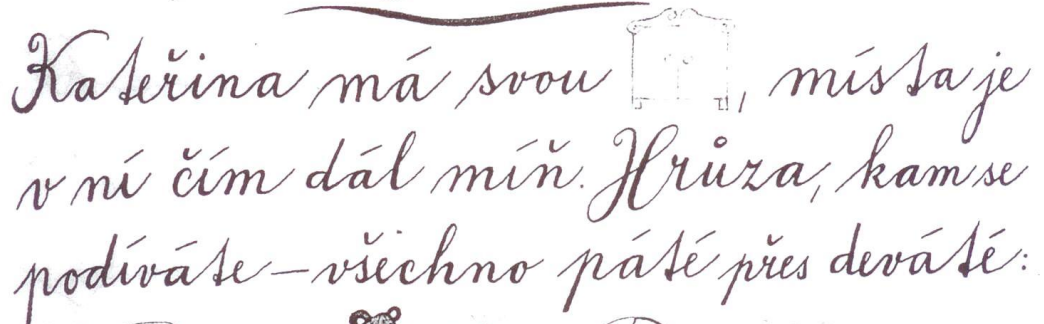 Kateřina má svou , místa je
v ní čím dál míň. Hrůza, kam se
podíváte – všichno páté přes deváté: